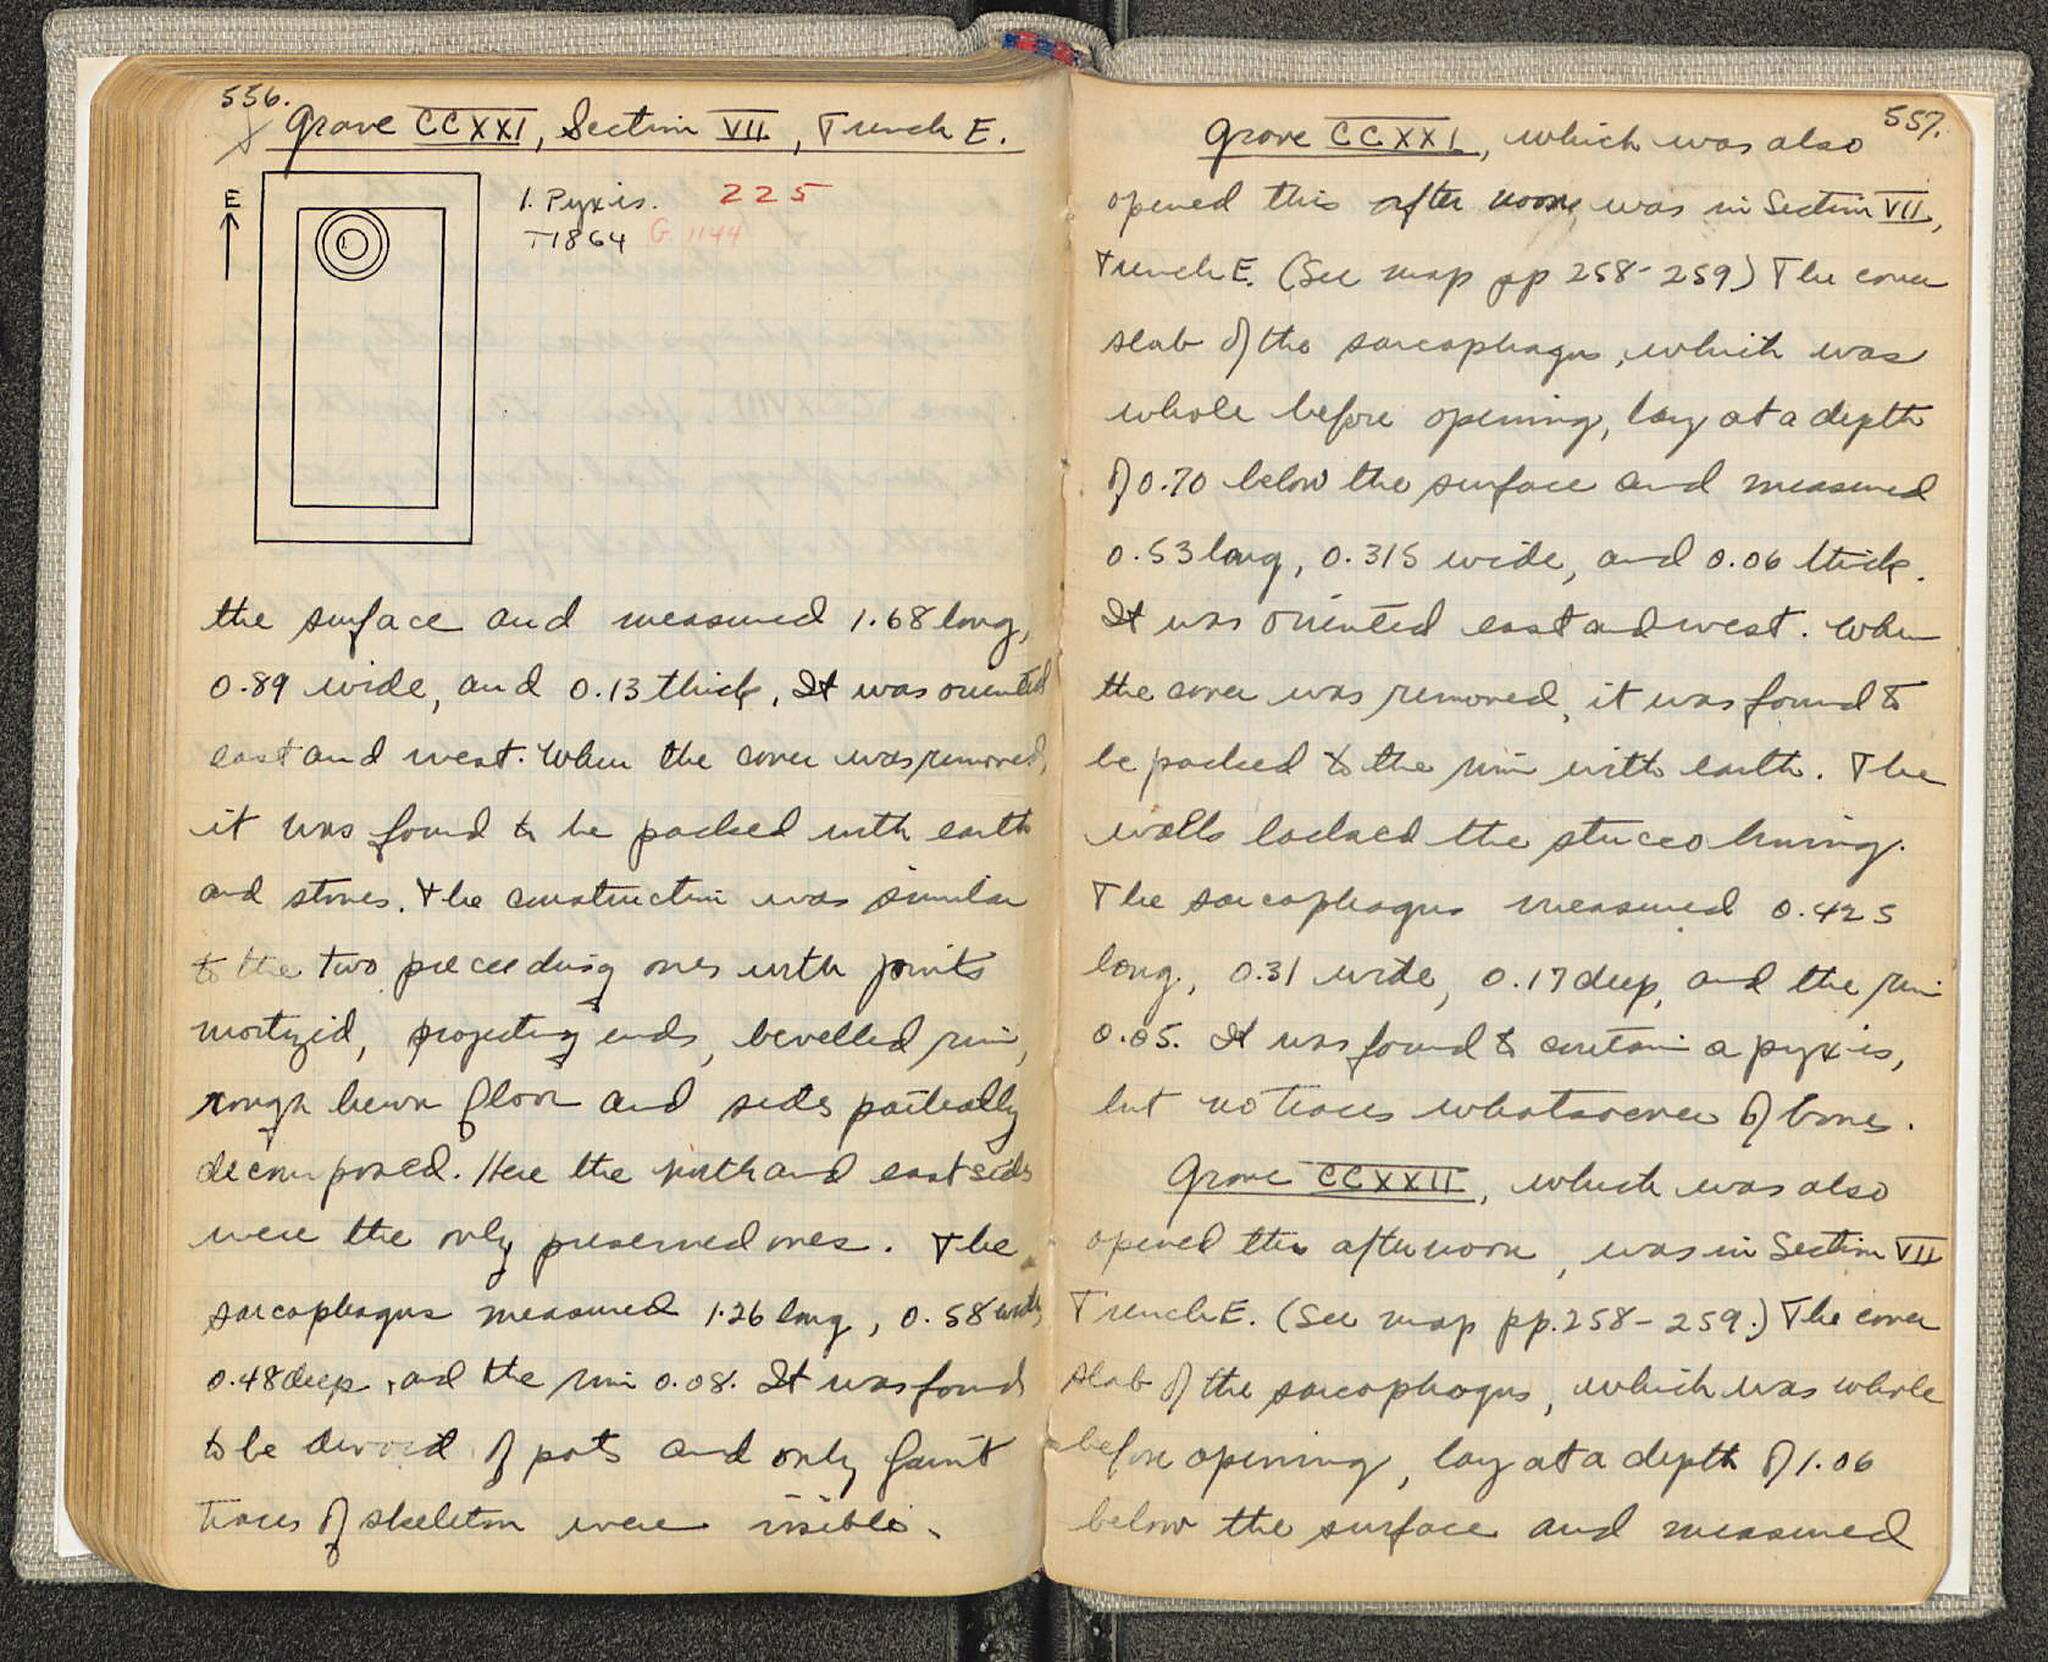 556.
Grave CCXXI, Section VII, Trench E.
E
1. Pyxis. 225
T1864 G. 1144
1.
the surface and measured 1.68 long,
0.89 wide, and 0.13 thick. It was oriented
east and west. When the cover was removed,
it was found to be packed with earth
and stones. The construction was similar
to the two preceeding ones with joints
mortized, projecting ends, bevelled rim,
rough hewn floor and sides partially
decomposed. Here the north and east sides
were the only preserved ones. The
sarcophagus measured 1.26 long, 0.58 wide,
0.48 deep, and the rim 0.08. It was found
to be devoid of pots and only faint
traces of skeleton were visible.
557.
Grave CCXXI, which was also
opened this after noon, was in Section VII,
Trench E. (See map pp 258-259) The cover
slab of the sarcophagus, which was
whole before opening, lay at a depth
of 0.70 below the surface and measured
0.53 long, 0.315 wide, and 0.06 thick.
It was oriented east and west. When
the cover was removed, it was found to
be packed to the rim with earth. The
walls lacked the stucco lining.
The sarcophagus measured 0.425
long, 0.31 wide, 0.17 deep, and the rim
0.05. It was found to contain a pyxis,
but no traces whatsoever of bones.
Grave CCXXII, which was also
opened this afternoon, was in Section VII
Trench E. (See map pp. 258-259.) The cover
slab of the sarcophagus, which was whole
before opening, lay at a depth of 1.06
below the surface and measured